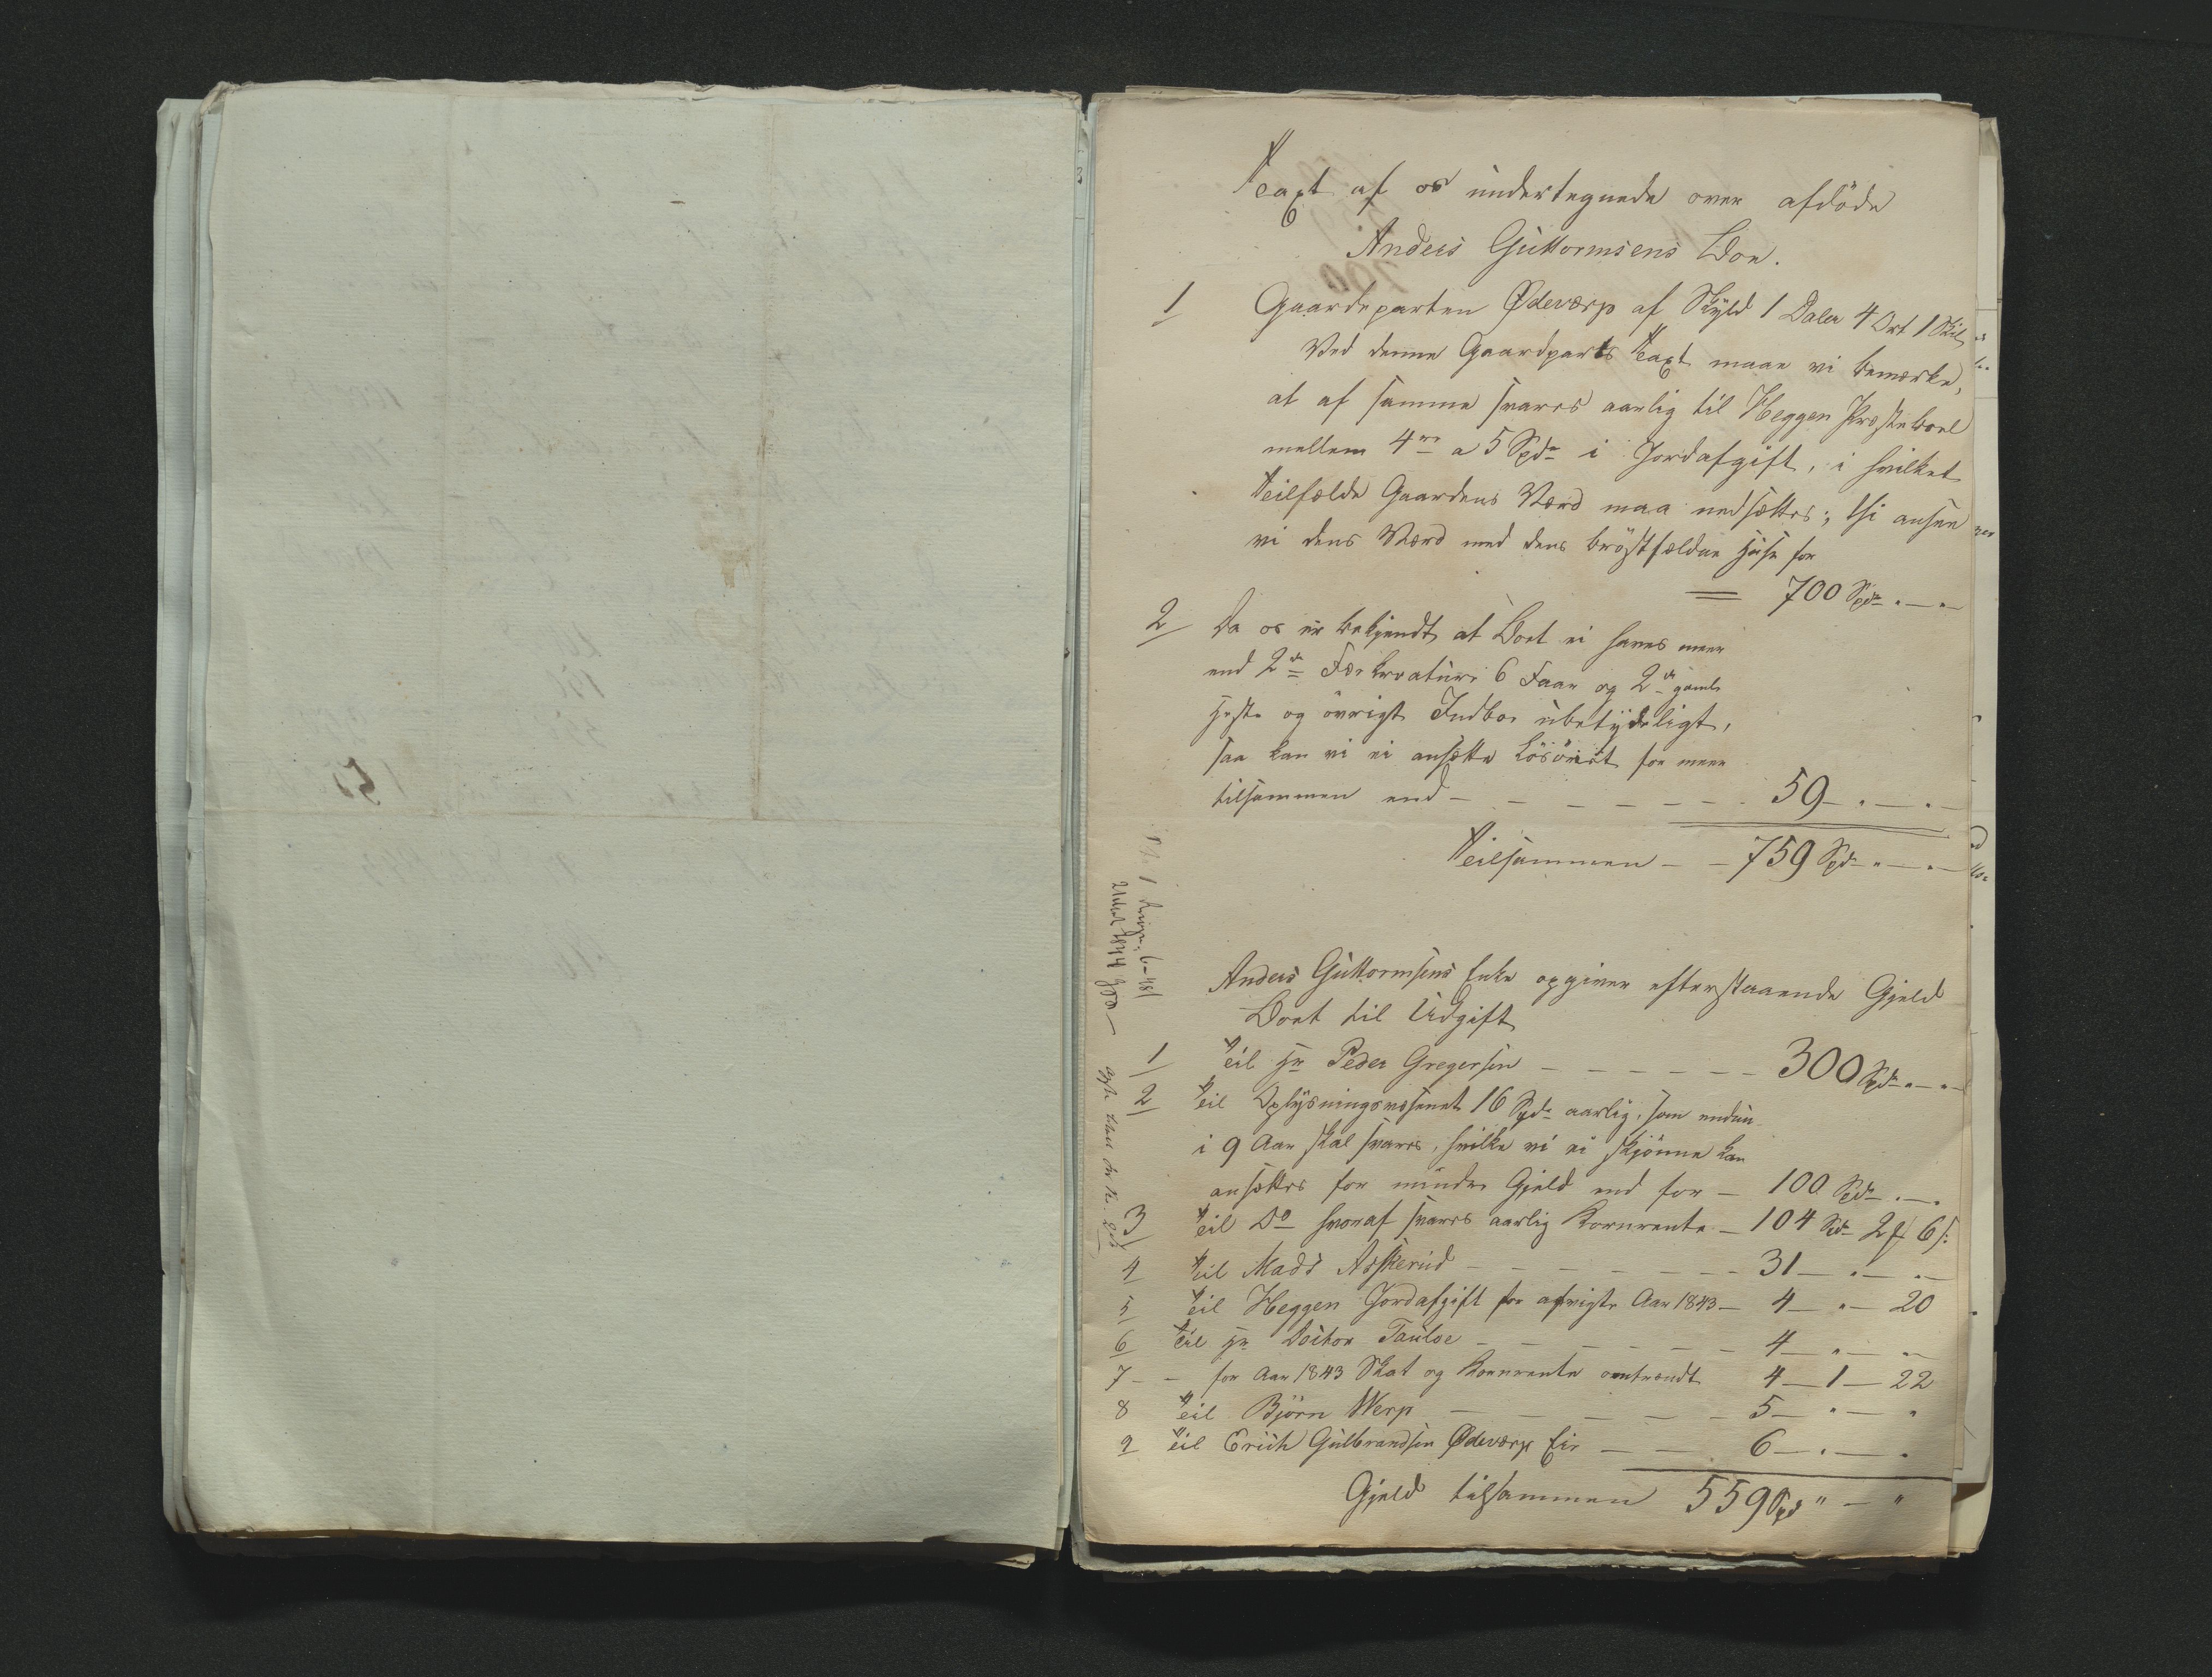 Taxt af os undertegnede over afdöde
Anders Guttormsens Boe.
1 Gaardeparten Ødeværp af Skyld 1 Daler 4 Ort 1 Skil
Ved denne Gaardparts Taxt maae vi bemærke,
at af samme svares aarlig til Heggen Præsteboel
mellem 4re a 5 Spd i Jordafgift, i hvilket
Teilfælde Gaardens Værd maa nedsættes; thi ansee
vi dens Værd med dens bröstfældne Huse for
700 Spd " — "
2 Da os er bekjendt at Boet ei haves meer
end 2de Fækreature 6 Faar og 2de gamle
Heste og övrigt Indboe ubetydeligt,
saa kan vi ei ansætte Lösöret for meer
tilsammen end — — — — — — 59 — " — " —
Teilsammen — — 759 Spd — " — " —
Anders Guttormsens Enke opgiver efterstaaende Gjeld
Boet til Udgift
1 Teil Hr Peder Gregersen — — — — — — 300 Spd " — "
2 Teil Oplysningsvæsenet 16 Spd aarlig, som endnu
i 9 Aar skal svares, hvilke vi ei skjönne kan
ansættes for mindre Gjeld end for — 100 Spd " — "
3 Teil Do hvoraf svares aarlig Kornrente — 104 Spd 2 6
4 Teil Mads Askerud — — — — — — 31 — " — "
5 Teil Heggen Jordafgift for afvigte Aar 1843 — 4 — " — 20
6 Teil Hr Doctor — — — — — — 4 — " — "
7 — — for Aar 1843 Skat og Kornrente omtrendt 4 — 1 — 22
8 Teil Björn Werp — — — — — — 5 — " — "
9 Teil Erich Gulbrandsen Ødeværp Eie — — 6 — " — "
Gjeld tilsammen 559 Spd " — "